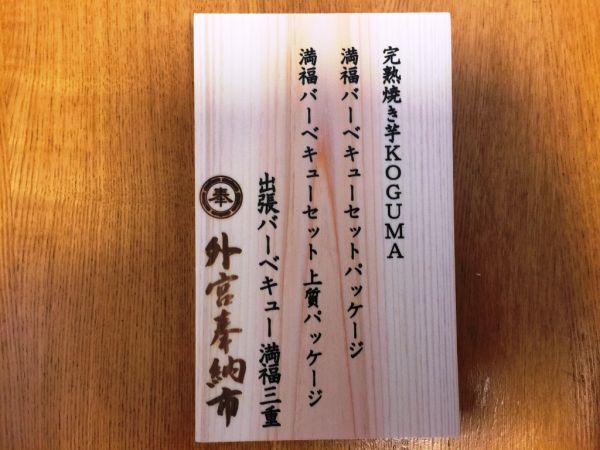 完熟焼き芋KOGUMA
満福バーベキューセットパッケージ
満福バーベキューセット 上質パッケージ
出張バーベキュー 満福三重
奉
外宮奉納市